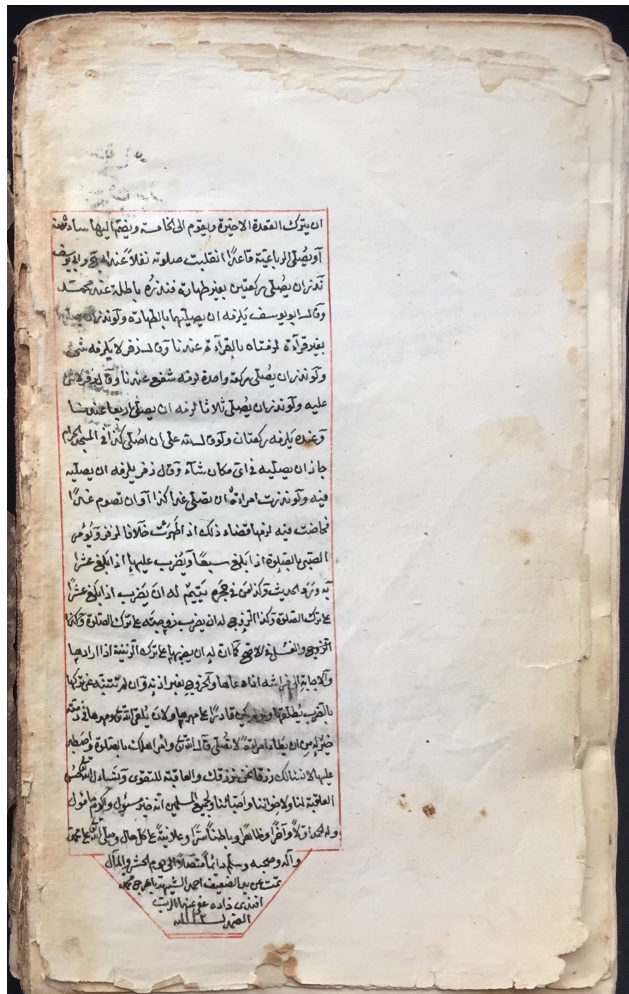 ان يترك القعدة الاخيرة ويقوم الى الخامسة ويضم اليها سادسة
او يصلي الرباعية قاعدا انقلبت صلوته نفلا عند
نذر ان يصلي ركعتين بغير طهارة فنذره باطلة عند محمد
وقال ابو يوسف يلزمه ان يصليها بالطهارة ولو نذر ان يصليها
بغير قراءة لزمتاه بالقراءة عندنا وقال زفر لا يلزمه شئ
ولو نذر ان يصلي ركعة واحدة لزمه شفع عندنا وقال زفر لا شئ
عليه ولو نذر ان يصلي ثلاثا لزمه ان يصلي اربعا عندنا
وعنده يلزمه ركعتان ولو قال لله علي ان اصلي كذا في المسجد الحرام
جاز ان يصليه في اي مكان شاء وقال زفر يلزمه ان يصليه
فيه ولو نذرت امراة ان تصلي غدا كذا او ان تصوم غدا
فحاضت فيه لزمها قضاء ذلك اذا طهرت خلافا لزفر ويؤمر
الصبي بالصلوة اذا بلغ سبعا ويضرب عليها اذا بلغ عشرا
به ورد الحديث وكذا من في حجره يتيم له ان يضرب اذا بلغ عشرا
على ترك الصلوة وكذا الزوج له ان يضرب زوجته على ترك الصلوة وكذا
في الاصح كما ان له ان يضربها على ترك الزينة اذا ارادها
والاجابة الى فراشه اذا دعاها والخروج بغير اذنه وان لم تنته عن تركها
بالضرب يطلقها ولو لم يكن قادرا على مهرها ولان يلقى الله تعالى ومهرها في ذمته
خير له من ان يطأ امراة لا تصلي قال الله تعالى وامر اهلك بالصلوة واصطبر
عليها لا نسئلك رزقا نحن نرزقك والعاقبة للتقوى
العاقبة لنا ولاخواننا ولجميع المسلمين انه خير مسئول واكرم مأمول
وله الحمد اولا وآخرا وظاهرا وباطنا سرا وعلانية على كل حال وصلى الله على محمد
وآله وصحبه وسلم دائما متصلا الى يوم الحشر والمآل
تمت عن يد الضعيف احمد الشهير
افندي زاده عفى عنهما الرب
الصمد